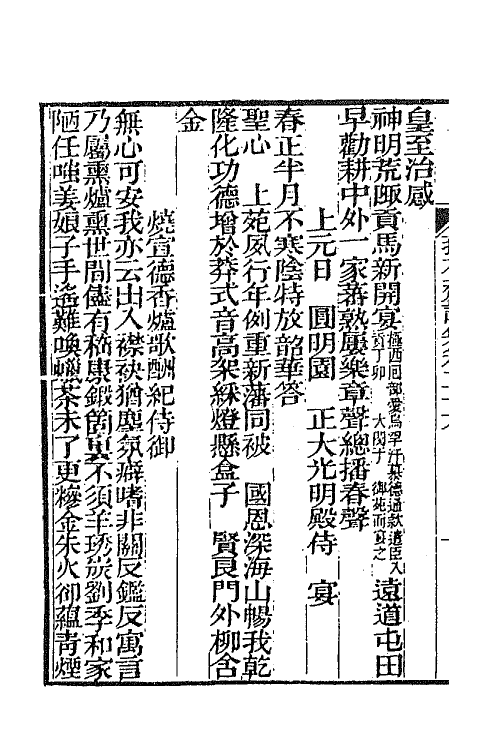 皇至治感
神明荒陬貢馬新開宴極西回部愛烏罕汗慕德通款遣臣入貢丁卯大閱于御苑而宴之遠道屯田
早勸耕中外一家蕃熟屢樂章聲總播春聲
上元日 圓明園 正大光明殿侍 宴
春正半月不寒陰特放韶華答
聖心 上苑風行年例重新藩同被 國恩深海山暢我乾
隆化功德增於莽式音高架綵燈懸盒子 賢良門外柳含
金
燒宣德香爐歌酬紀侍御
無心可安我亦云出入襟袂猶塵氛癖嗜非關反鑑反寓言
乃屬熏爐熏世間儘有嵇康鍛箇裏不須羊琇炭劉季和家
陋任嗤姜娘子手遙難喚蠟茶未了更糝金朱火卻蘊青煙